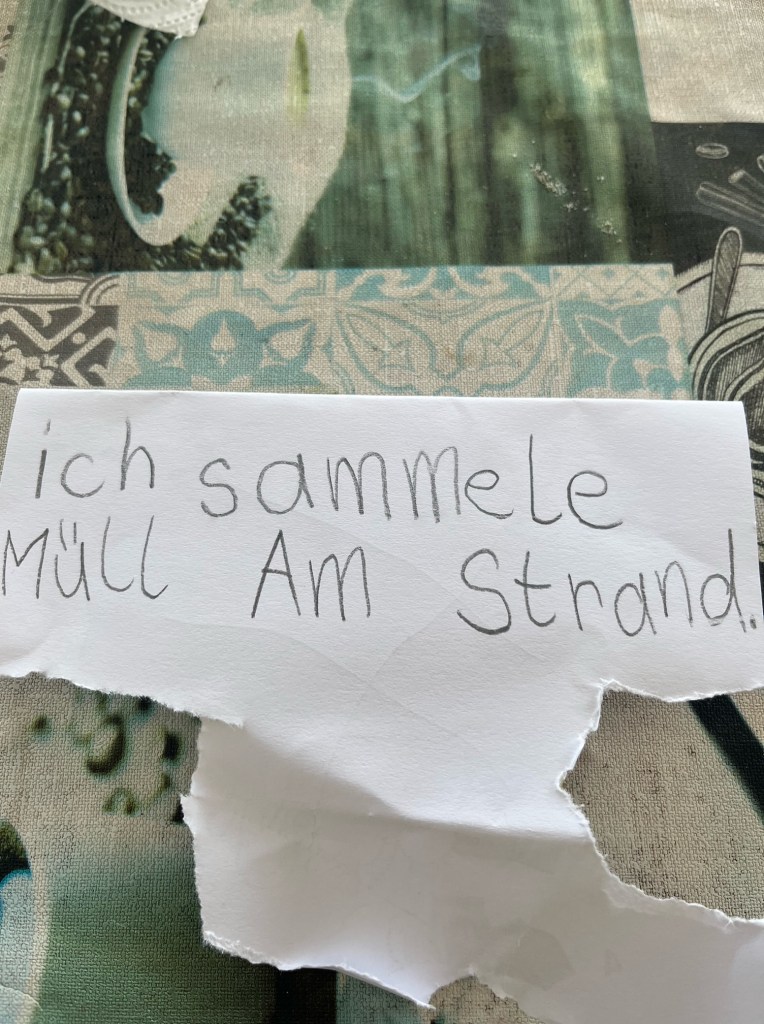 ich sammele
Müll Am Strand.